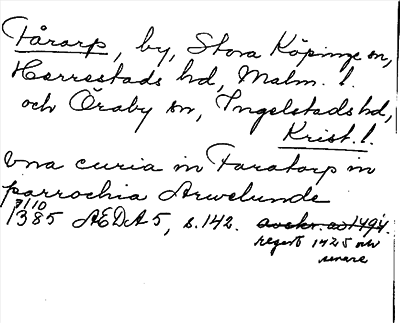 Fårarp, by, Stora Köpinge sn,
Herrestads hd, Malm. l.
och Öraby sn, Ingelstads hd,
Krist. l.
Una curia in Faratorp in
parrochia Arwelunde
7/10
1385 AEDA 5, s. 142. avskr. av 1494.
regest 1425 och
senare